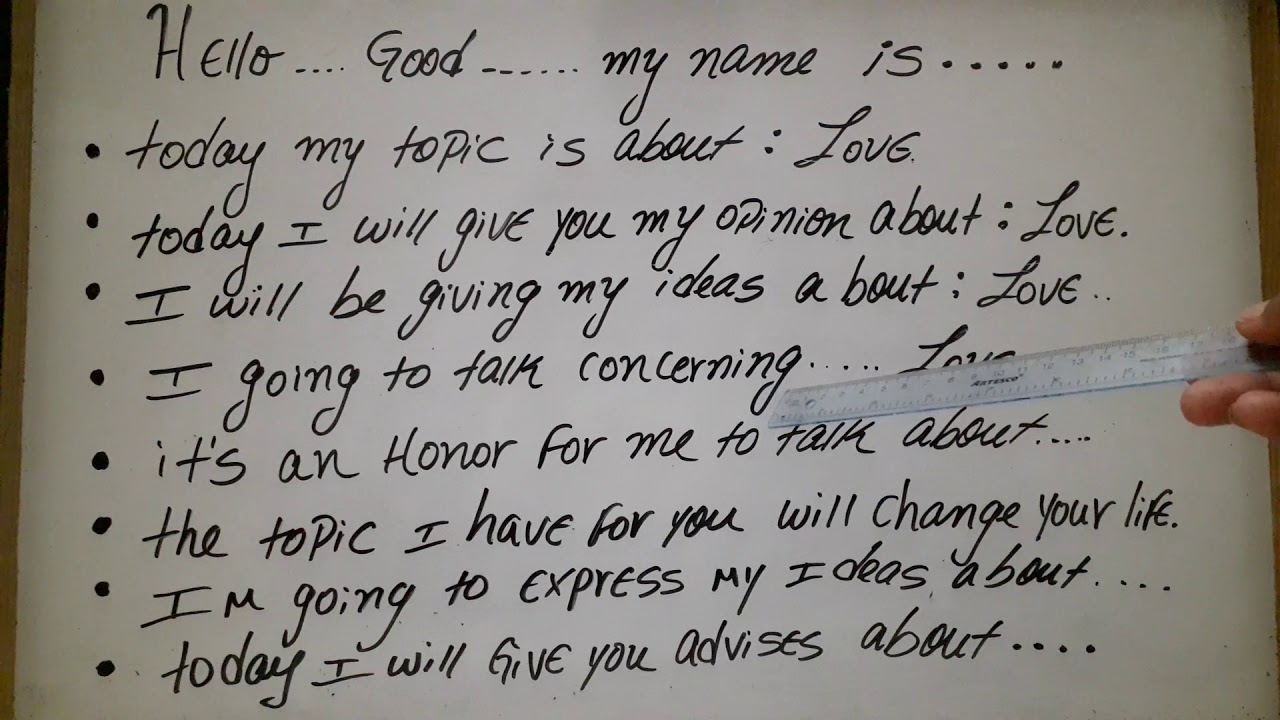 Hello .... Good ...... my name is .....
• today my topic is about : Love.
• today I will give you my opinion about : Love.
• I will be giving my ideas about : Love ..
• I going to talk concerning ..... Love
ARTESCO
• it's an Honor for me to talk about ....
• the topic I have for you will change your life.
• I'm going to express my Ideas about ....
• today I will Give you advises about ....